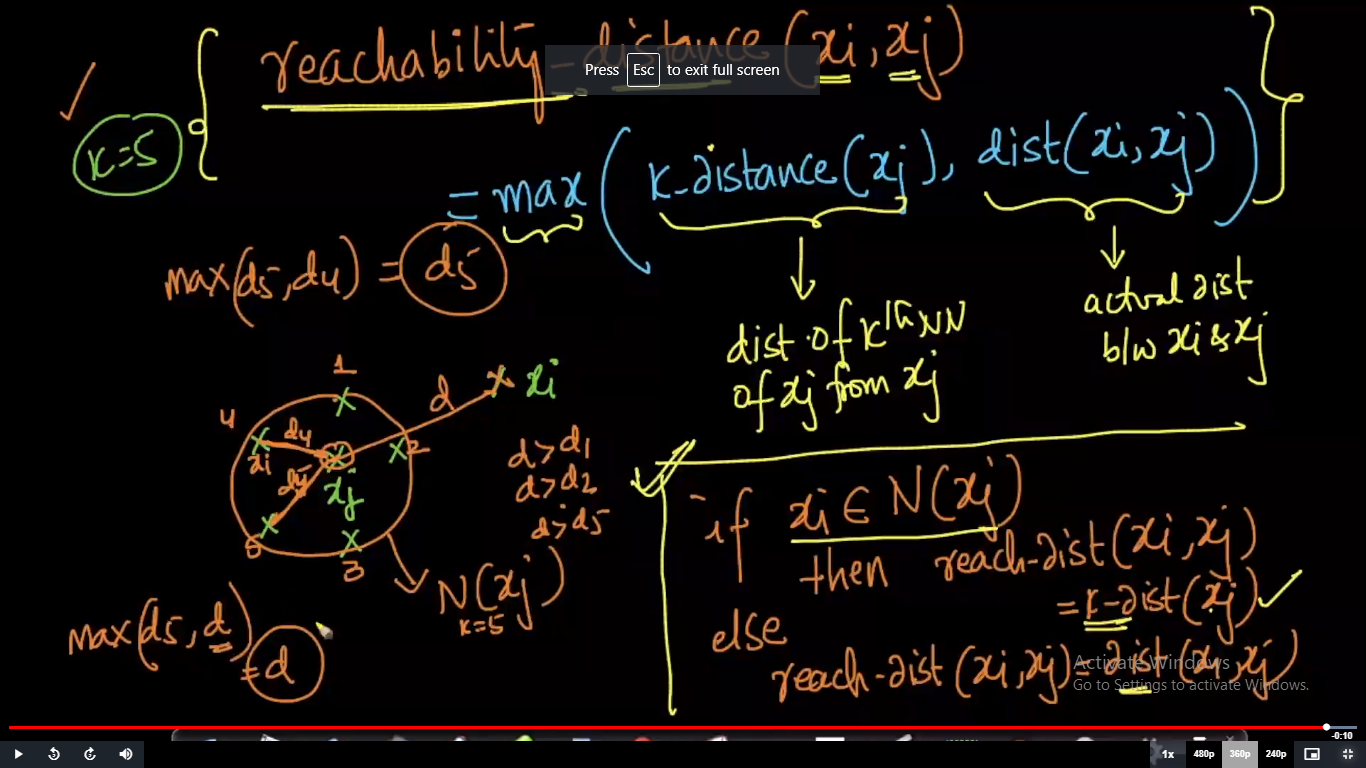 reachability-distance (xi, xj)
Press Esc to exit full screen
k=5
= max ( k-distance(xj), dist(xi, xj) )
max(d5, d4) = d5
dist of kth NN
of xj from xj
actual dist
b/w xi & xj
1
4
d4
xi
d5
xj
2
5
3
d
xi
d>d1
d>d2
d>d5
N(xj)
k=5
max(d5, d)
= d
if xi ∈ N(xj)
then reach-dist(xi, xj)
= k-dist(xj)
else
reach-dist (xi, xj) = dist (xi, xj)
Activate Windows
Go to Settings to activate Windows.
-0:10
1x 480p 360p 240p